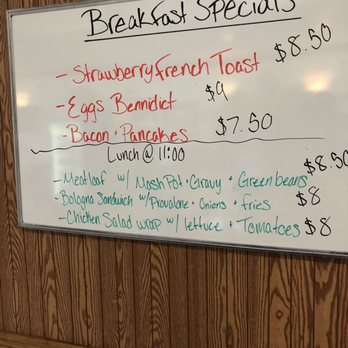 Breakfast Specials
- Strawberry French Toast $8.50
- Eggs Bennidict $9
- Bacon + Pancakes $7.50
Lunch @ 11:00
- Meatloaf w/ Mash Pot + Gravy + Green beans $8.50
- Bologna Sandwich w/ Provalone + Onions + fries $8
- Chicken Salad wrap w/ lettuce + Tomatoes $8